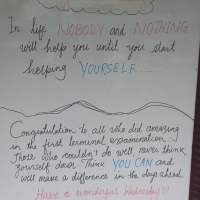 In life NOBODY and NOTHING
will help you until you start
helping YOURSELF......
Congratulation to all who did amazing
in the first terminal examination.
Those who couldn't do well, never think
yourself down. Think YOU CAN and
will make a difference in the days ahead.
Have a wonderful Wednesday!!!